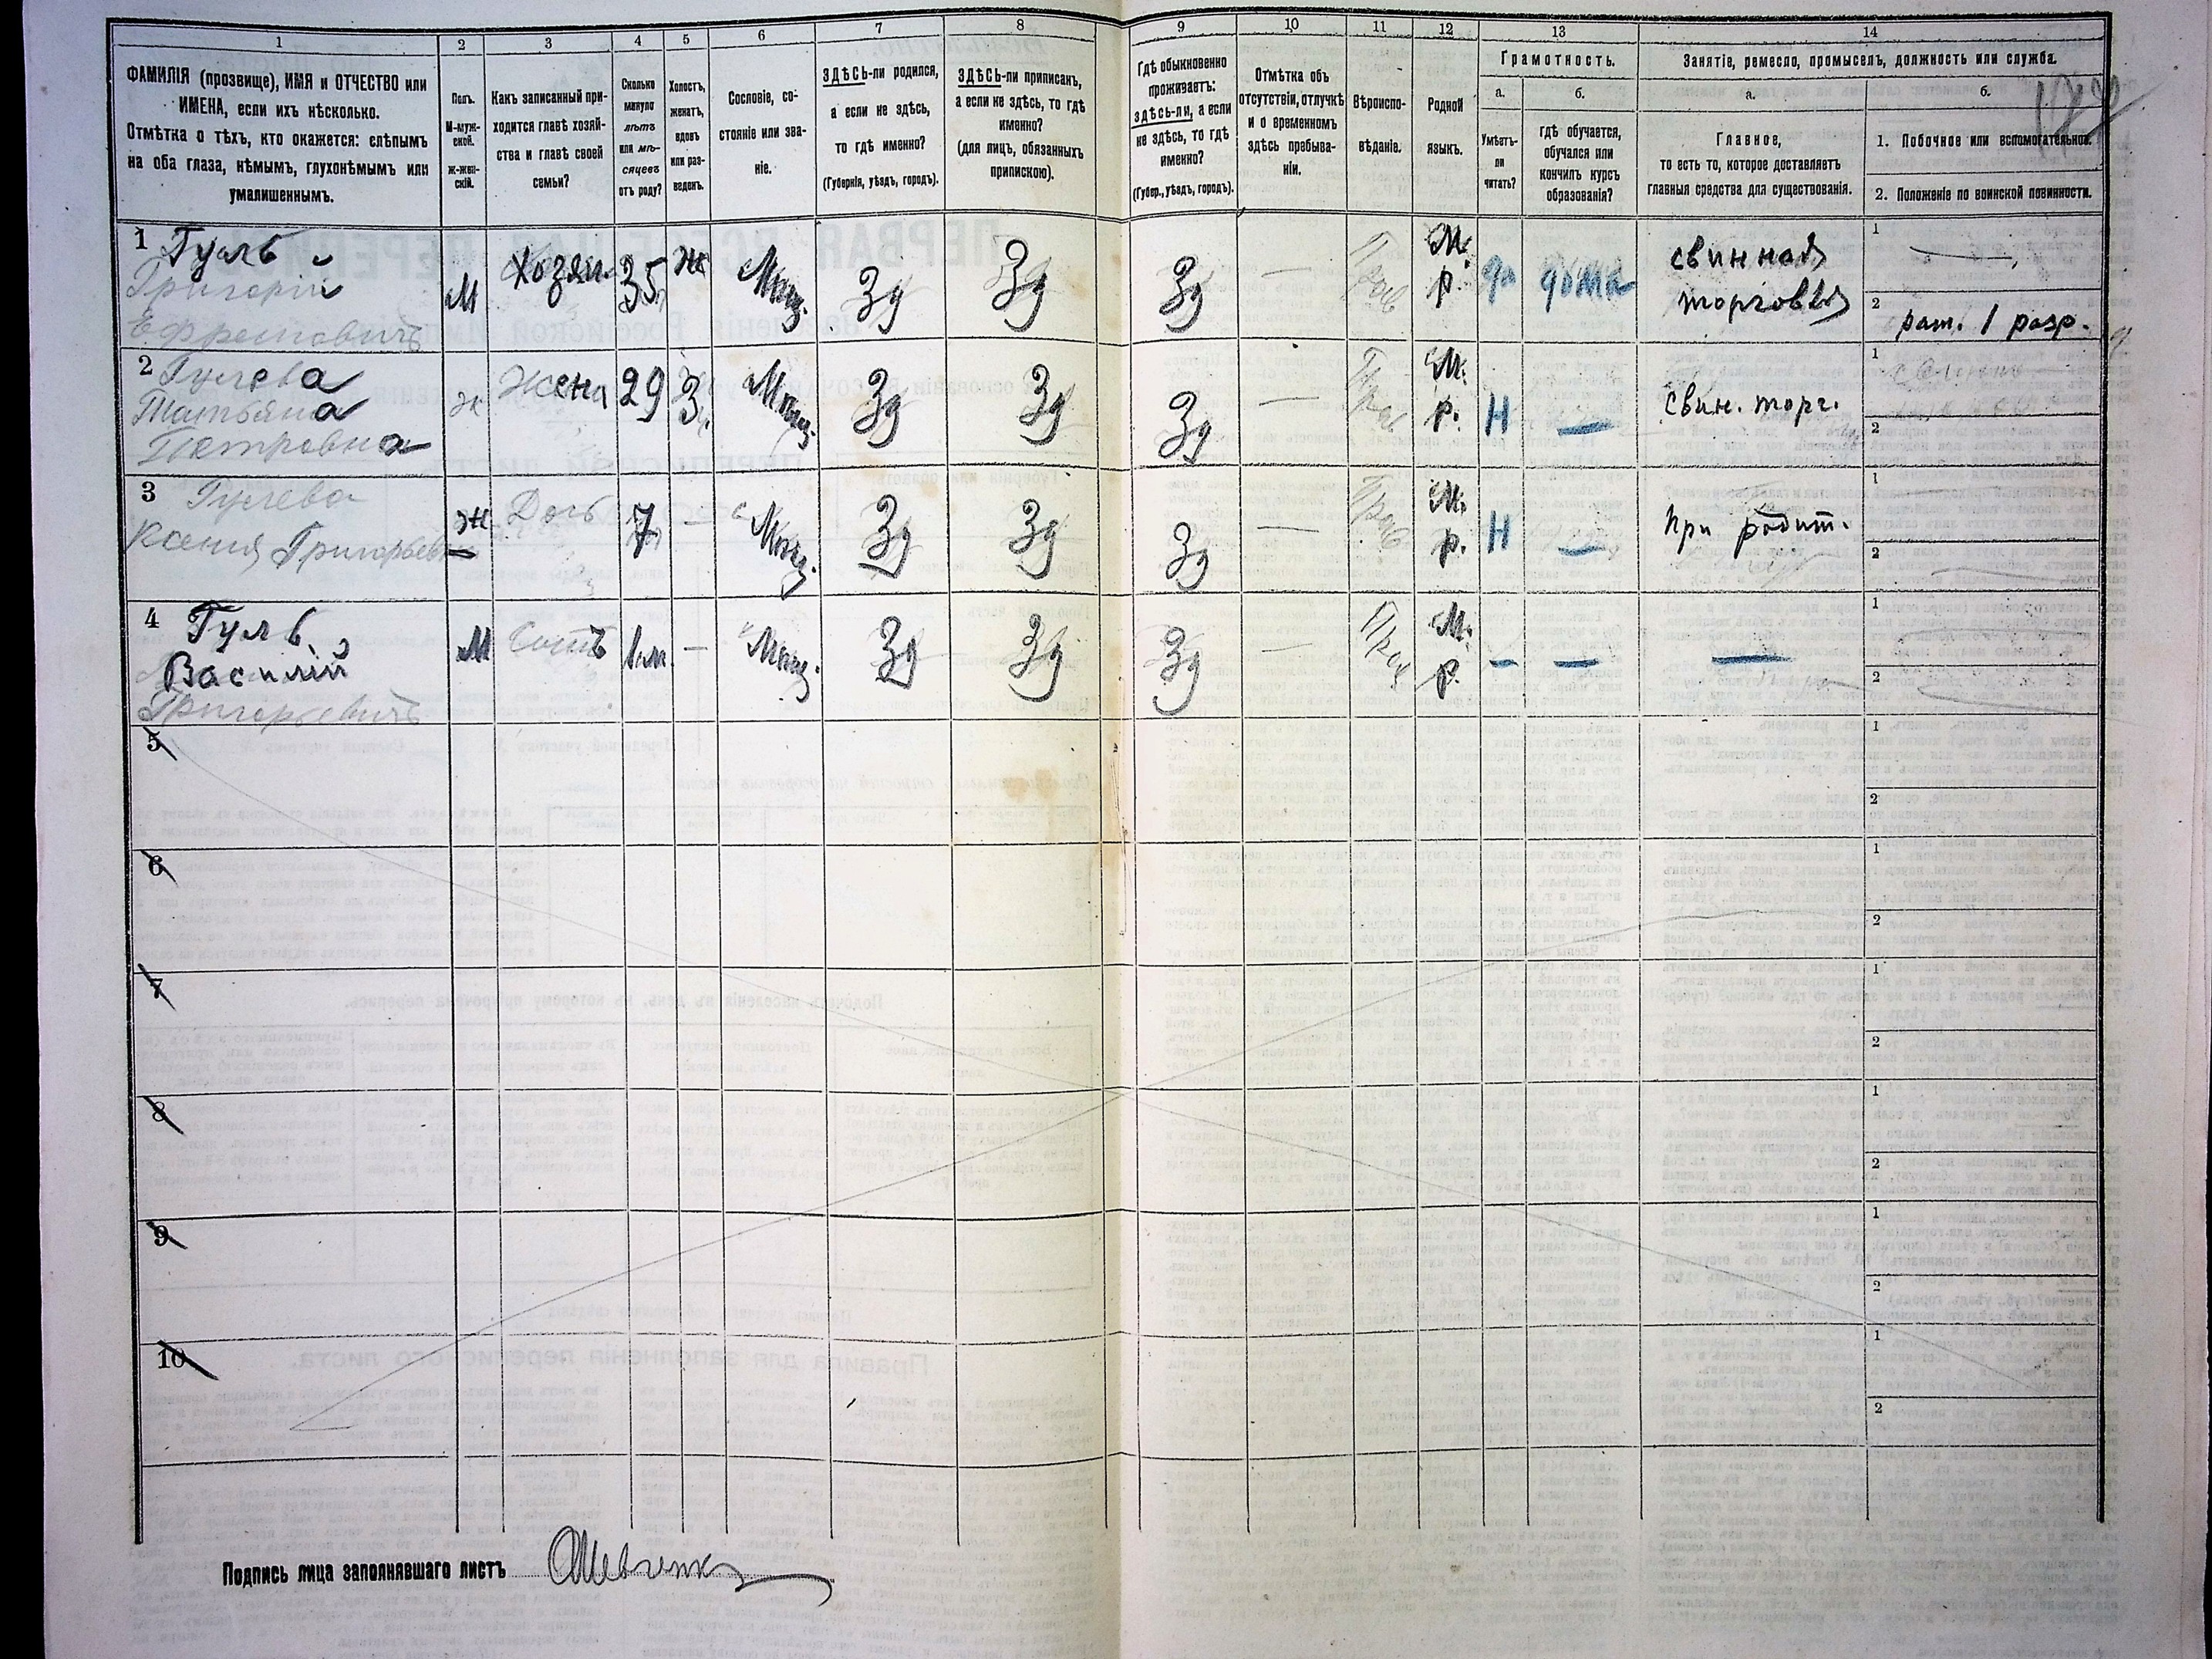 1
2
3
4
5
6
7
8
9
10
11
12
13
14
ФАМИЛІЯ (прозвище), ИМЯ и ОТЧЕСТВО или
ИМЕНА, если ихъ нѣсколько.
Отмѣтка о тѣхъ, кто окажется: слѣпымъ
на оба глаза, нѣмымъ, глухонѣмымъ или
умалишеннымъ.
Полъ.
М-муж-
ской.
ж-жен-
скій.
Какъ записанный при-
ходится главѣ хозяй-
ства и главѣ своей
семьи?
Сколько
минуло
лѣтъ
или мѣ-
сяцевъ
отъ роду?
Холостъ,
женатъ,
вдовъ
или раз-
веденъ.
Сословіе, со-
стояніе или зва-
ніе.
ЗДѢСЬ-ли родился,
а если не здѣсь,
то гдѣ именно?
(Губернія, уѣздъ, городъ).
ЗДѢСЬ-ли приписанъ,
а если не здѣсь, то гдѣ
именно?
(для лицъ, обязанныхъ
припискою).
Гдѣ обыкновенно
проживаетъ:
здѣсь-ли, а если
не здѣсь, то гдѣ
именно?
(Губер., уѣздъ, городъ).
Отмѣтка объ
отсутствіи, отлучкѣ
и о временномъ
здѣсь пребыва-
ніи.
Вѣроиспо-
вѣданіе.
Родной
языкъ.
Грамотность.
а.
Умѣетъ-
ли
читать?
б.
гдѣ обучается,
обучался или
кончилъ курсъ
образованія?
Занятіе, ремесло, промыселъ, должность или служба.
а.
Главное,
то есть то, которое доставляетъ
главныя средства для существованія.
б.
1. Побочное или вспомогательное.
2. Положеніе по воинской повинности.
1
Гуль
Григорій
Ефремовичъ
М
Хозяи
35
ж
Мѣщ.
Зд
Зд
Зд
—
Прав
М.
р.
да
дома
свинная
торговля
1 —
2 рат. 1 разр.
2
Гулева
Татьяна
Петровна
ж
Жена
29
З.
Мѣщ.
Зд
Зд
Зд
—
Прав
М.
р.
Н
—
Свин. торг.
1
2
3
Гулева
Ксенія Григорьевна
ж
Дочь
7
—
Мѣщ.
Зд
Зд
Зд
—
Прав
М.
р.
Н
—
При родит.
1
2
4
Гуль
Василій
Григорьевичъ
М
Сынъ
1 м.
—
Мѣщ.
Зд
Зд
Зд
—
Прав
М.
р.
—
—
—
1
2
5
1
2
6
1
2
7
1
2
8
1
2
9
1
2
10
1
2
Подпись лица заполнявшаго листъ